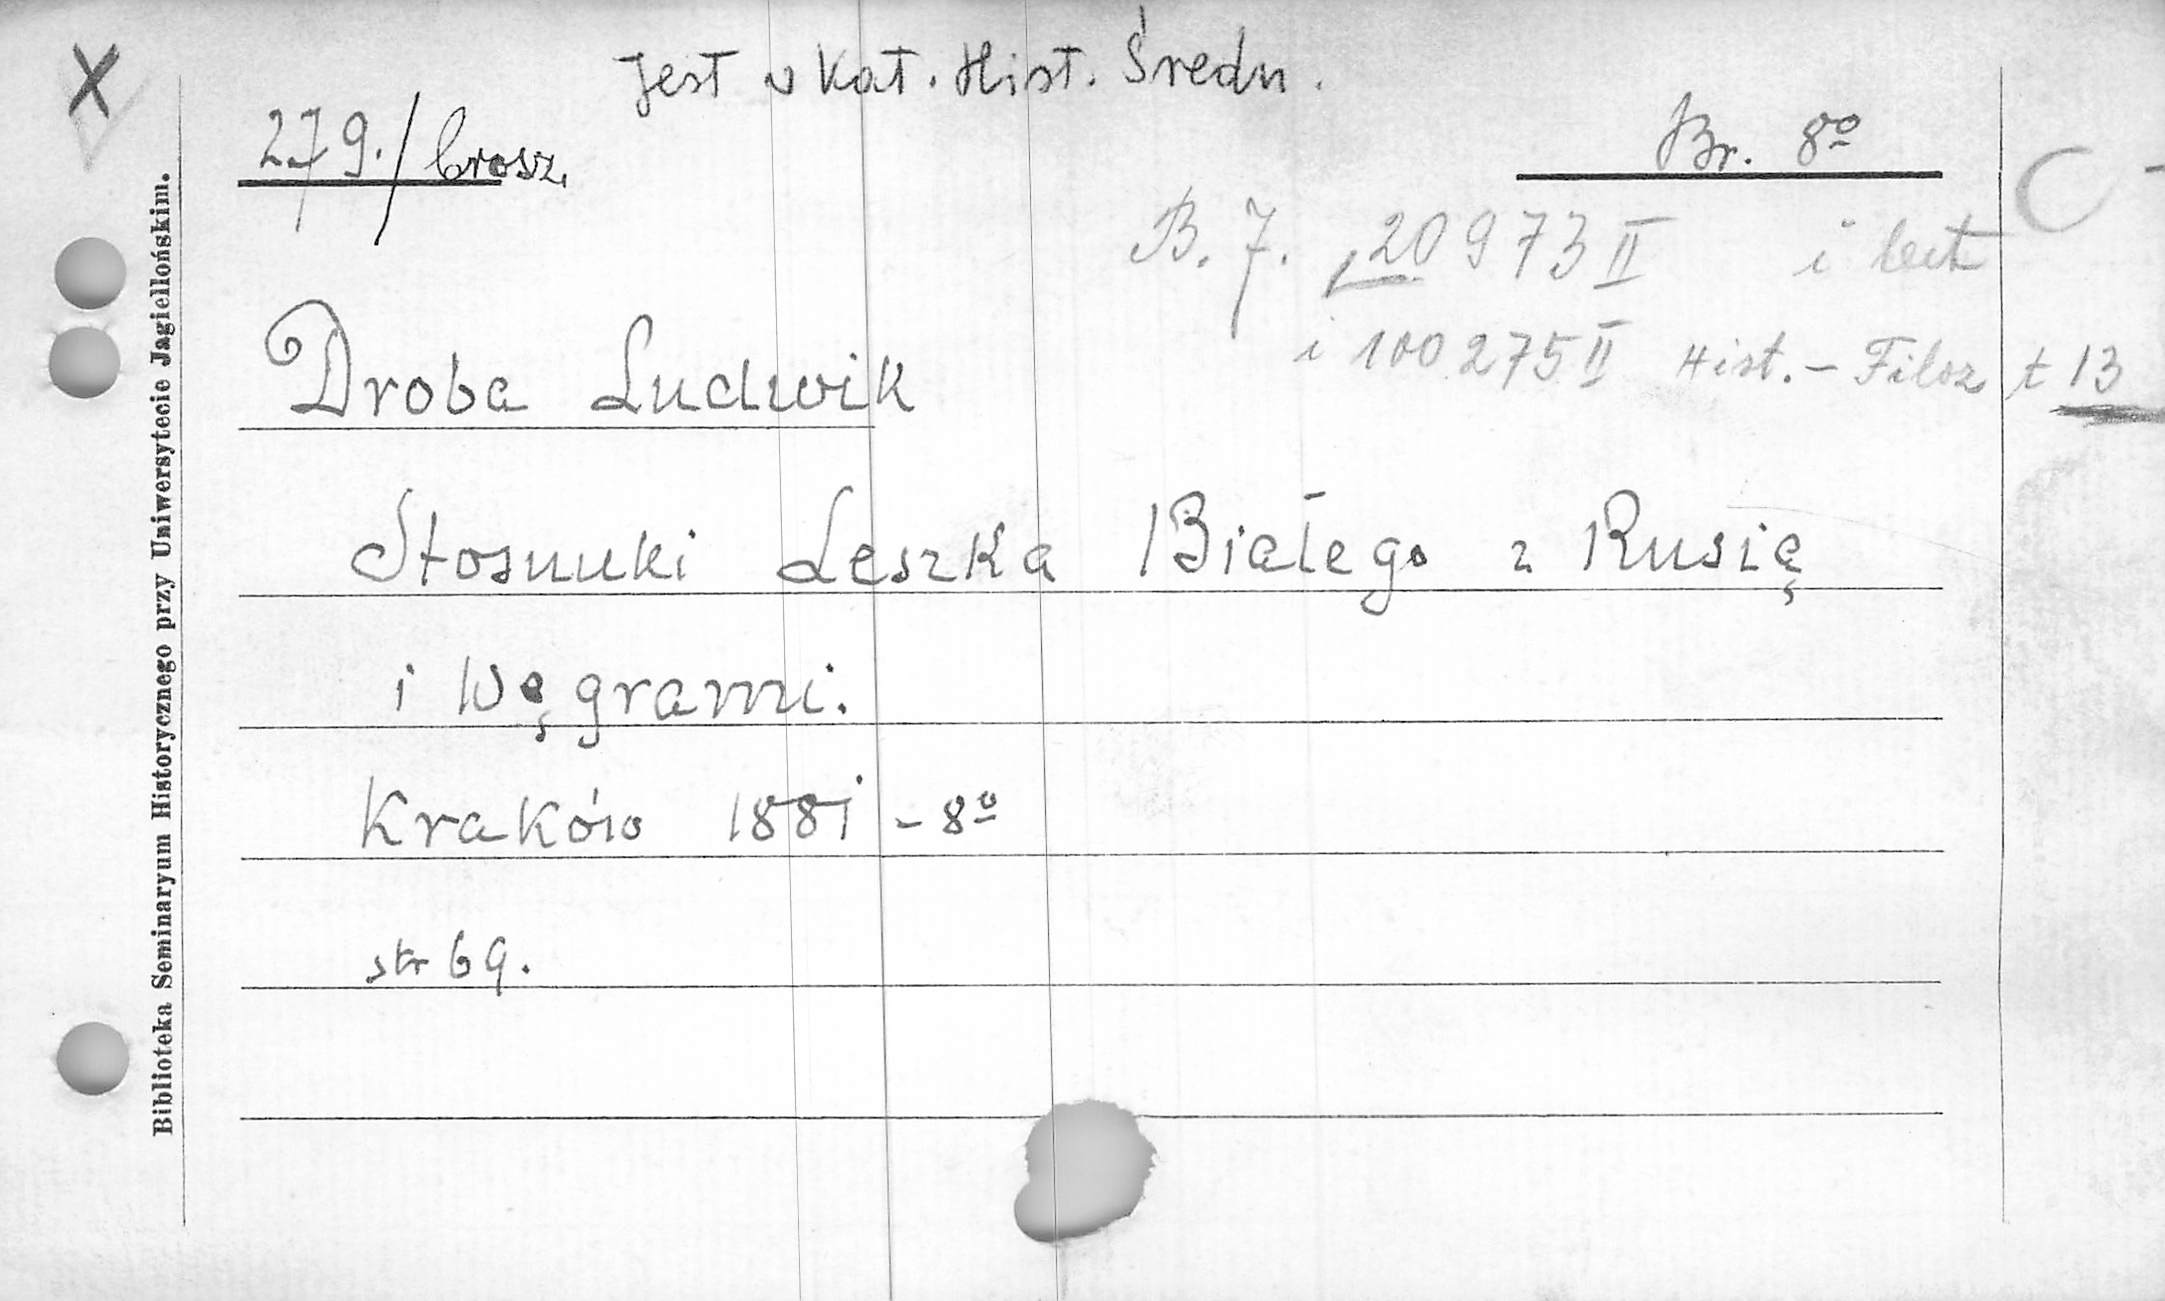 X
Jest w Kat. Hist. Średn.
279./brosz.
Br. 8º
C
B. J. 20973 II i
i 100275 II Hist.-Filoz t 13
Droba Ludwik
Stosunki Leszka Białego z Rusią
i Węgrami.
Kraków 1881 - 8º
str 69.
Biblioteka Seminaryum Historycznego przy Uniwersytecie Jagiellońskim.